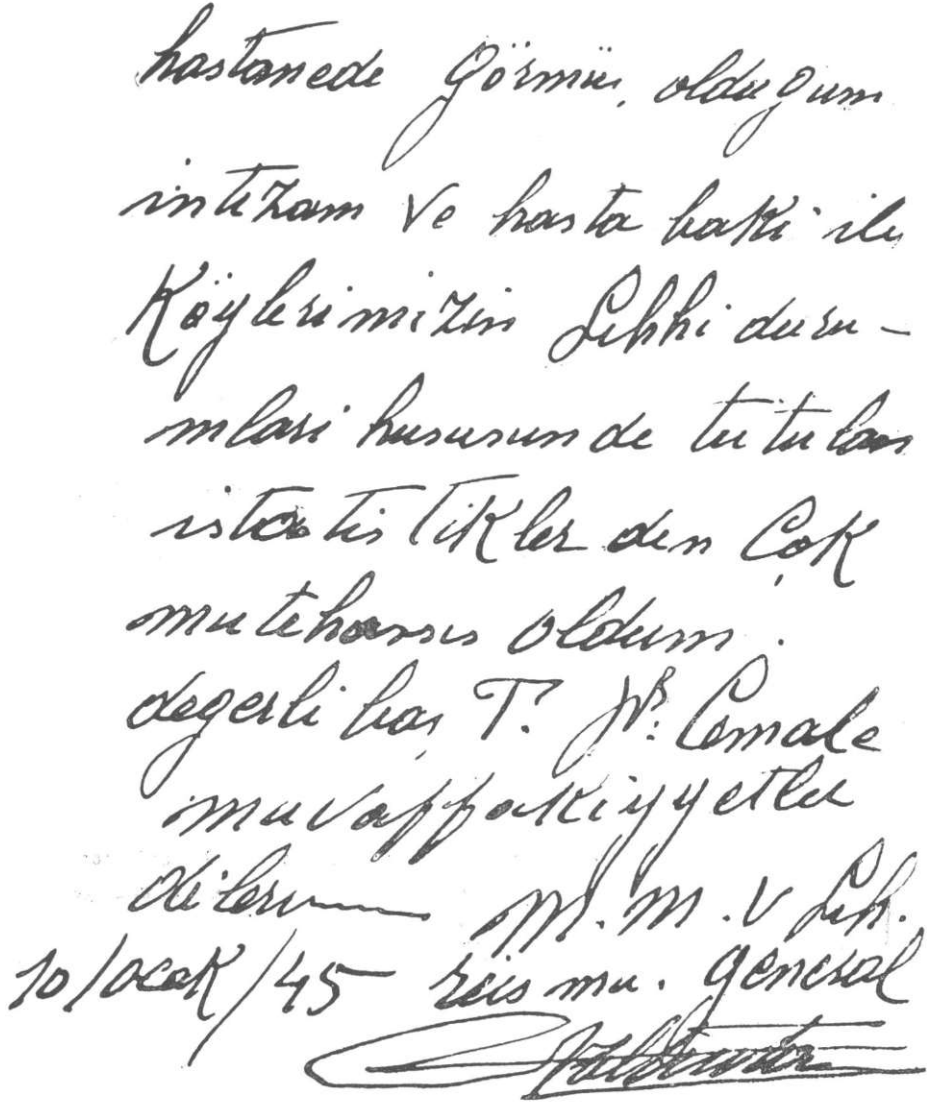 hastanede görmüş olduğum
intizam ve hasta baki ile
Köylerimizin Sıhhi duru-
mlari hususunde tutulan
istatistikler den Çok
mutehassıs oldum.
degerli baş T. Dr. Cemale
muvaffakiyyetler
dilerim M. M. V Sıh.
10/Ocak/45 reis mu. General